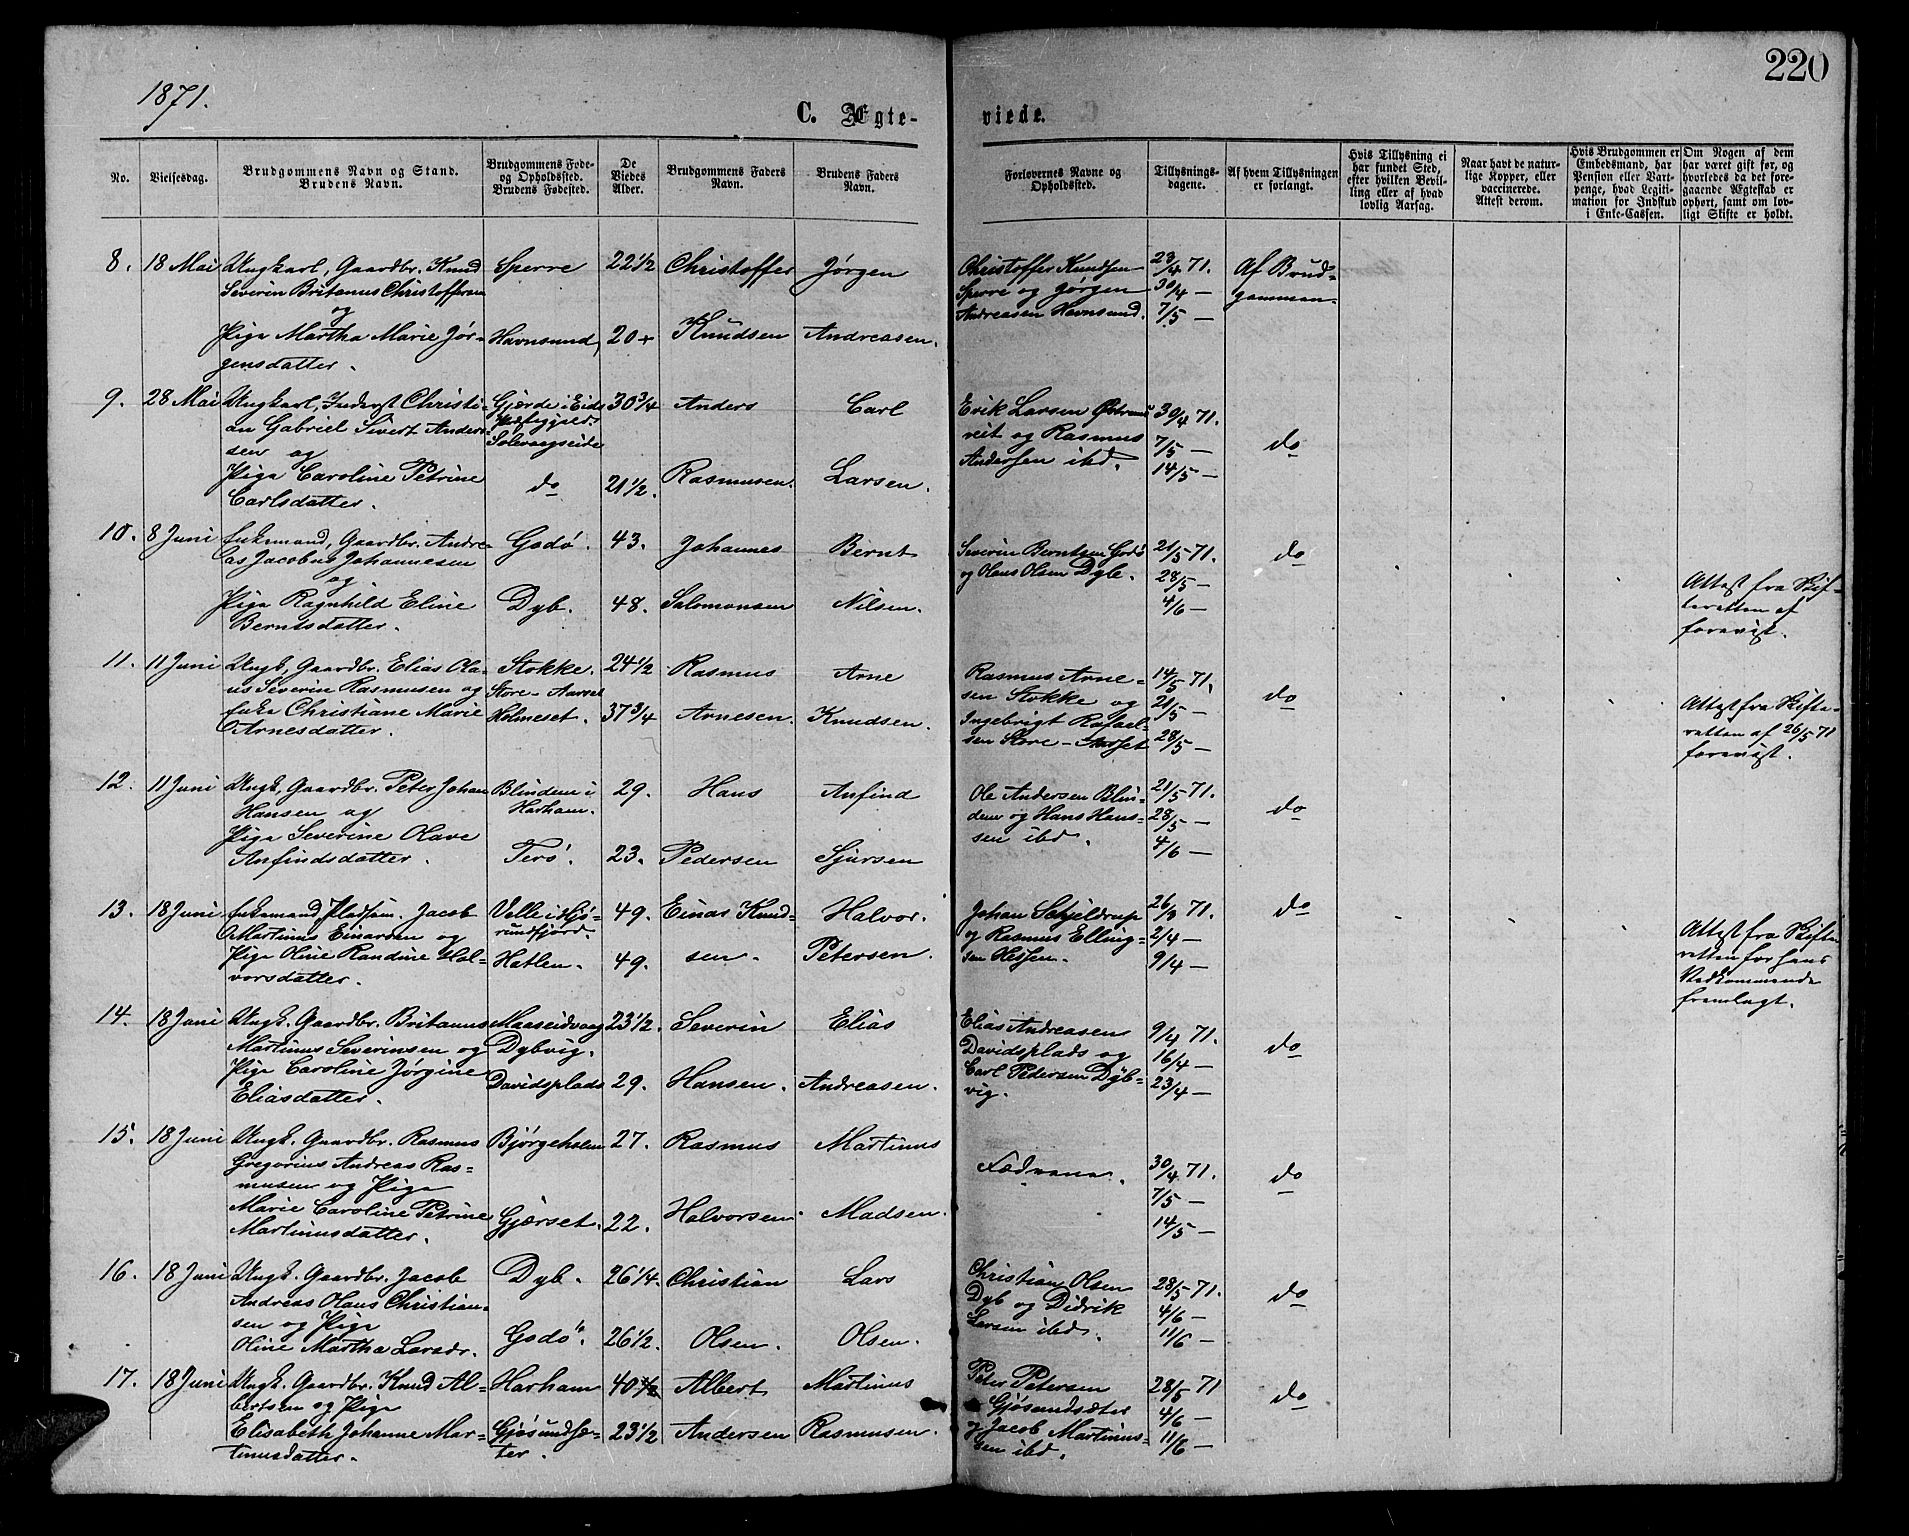 1871.
220
C. Ægte-
viede.
No.
Vielsesdag.
Brudgommens Navn og Stand.
Brudens Navn.
Brudgommens Føde-
og Opholdssted.
Brudens Fødested.
De
Viedes
Alder.
Brudgommens Faders
Navn.
Brudens Faders
Navn.
Forlovernes Navne og
Opholdssted.
Tillysnings-
dagene.
Af hvem Tillysningen
er forlangt.
Hvis Tillysning ei
har fundet Sted,
efter hvilken Bevil-
ling eller af hvad
lovlig Aarsag.
Naar havt de natur-
lige Kopper, eller
vaccinerede.
Attest derom.
Hvis Brudgommen er
Embedsmand, har
Pension eller Vart-
penge, hvad Legiti-
mation for Indskud
i Enke-Cassen.
Om Nogen af dem
har været gift før, og
hvorledes da det fore-
gaaende Ægteskab er
ophørt, samt om lov-
ligt Skifte er holdt.
8. 18 Mai
Ungkarl, Gaardbr. Knud
Severin Britanus Christoffersen
og
Pige Martha Marie Jør-
gensdatter.
Sperre
Havnsund
22 1/2
20 +
Christoffer
Knudsen
Jørgen
Andreasen.
Christoffer Knudsen
Sperre og Jørgen
Andreasen Havnsund.
23/4 71.
30/4 —
7/5 —
Af Brud-
gommen.
9. 28 Mai
Ungkarl, Inderst Christi-
an Gabriel Sivert Ander-
sen og
Pige Caroline Petrine
Carlsdatter.
Gjerde i Eids
Præstegjeld.
Solevaagseide
do
30 3/4
21 1/2.
Anders
Rasmusen.
Carl
Larsen.
Erik Larsen
veit og Rasmus
Andersen ibd.
30/4 71.
7/5 —
14/5 —
do
10. 8 Juni
Enkemand, Gaardbr. Andre-
as Jacobus Johannesen
og
Pige Ragnhild Eline
Berntsdatter.
Godø.
Dyb.
43.
48.
Johannes
Salomonsen
Bernt
Nilsen.
Severin Berntsen Godø
og Olaus Olsen Dyb.
21/5 71.
28/5 —
4/6 —
do
Attest fra Skif-
teretten af
forevist.
11. 11 Juni
Ungk, Gaardbr. Elias Ola-
us Severin Rasmusen og
Enke Christiane Marie
Arnesdatter.
Stokke.
Store-Aarset
Holmeset.
24 1/2
37 3/4
Rasmus
Arnesen.
Arne
Knudsen.
Rasmus Arne-
sen Stokke og
Ingebrigt Rafael-
sen Store-Aarset
14/5 71.
21/5 —
28/5 —
do
Attest fra Skifte-
retten af 26/5 71
forevist.
12. 11 Juni
Ungk, Gaardbr. Peter Johan
Hansen og
Pige Severine Olave
Anfindsdatter.
Blindem i
Harham.
Terø.
29.
23.
Hans
Pedersen
Anfind
Sjursen
Ole Andersen Blin-
dem og Hans Hans-
sen ibd.
21/5 71.
28/5 —
4/6 —
do
13. 18 Juni
Enkemand, Pladsm. Jacob
Martinus Einarsen og
Pige Oline Randine Hal-
vorsdatter.
Velle i Hjø-
rundfjord.
Hatlen.
49.
49.
Einar Knud-
sen.
Halvor.
Petersen.
Johan Schjeldrup
og Rasmus Elling-
sen Hessen.
26/3 71.
2/4 —
9/4 —
do
Attest fra Skifte
retten for hans
Vedkommende
fremlagt.
14. 18 Juni
Ungk. Gaardbr. Britanus
Martinus Severinsen og
Pige Caroline Jørgine
Eliasdatter.
Maaseidvaag
Dybvig.
Davidsplads
23 1/2.
29.
Severin
Hansen.
Elias
Andreasen.
Elias Andreasen
Davidsplads og
Carl Pedersen Dyb-
vig.
9/4 71.
16/4 —
23/4 —
do
15. 18 Juni
Ungk. Gaardbr. Rasmus
Gregorius Andreas Ras-
musen og Pige
Marie Caroline Petrine
Martinusdatter.
Bjørgeholm
Gjerset.
27.
22.
Rasmus
Halvorsen.
Martinus
Madsen.
Fædrene.
30/4 71.
7/5 —
14/5 —
do
16. 18 Juni
Ungk. Gaardbr. Jacob
Andreas Olaus Christian-
sen og Pige
Oline Martha Larsdr.
Dyb.
Godø.
26 1/4.
26 1/2.
Christian
Olsen.
Lars
Olsen.
Christian Olsen
Dyb og Didrik
Larsen ibd.
28/5 71.
4/6 —
11/6 —
do
17. 18 Juni
Ungk. Gaardbr. Knud Al-
bertsen og Pige
Elisabeth Johanne Mar-
tinusdatter.
Harham
Gjøsundsæ-
ter.
40 1/2
23 1/2
Albert
Andersen
Martinus
Rasmusen.
Peter Petersen
Gjøsundsæter
og Jacob Martinus-
sen ibd.
28/5 71
4/6 —
11/6 —
do